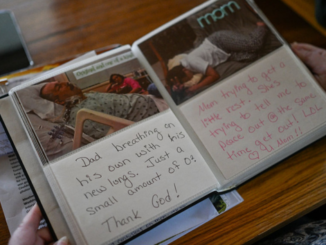 mom
Dad breathing on
his own with his
new longs. Just a
small amount of O².
Thank God!
Mom trying to get a
little rest. She's
trying to tell me to
peace out @ the same
time get out! LOL